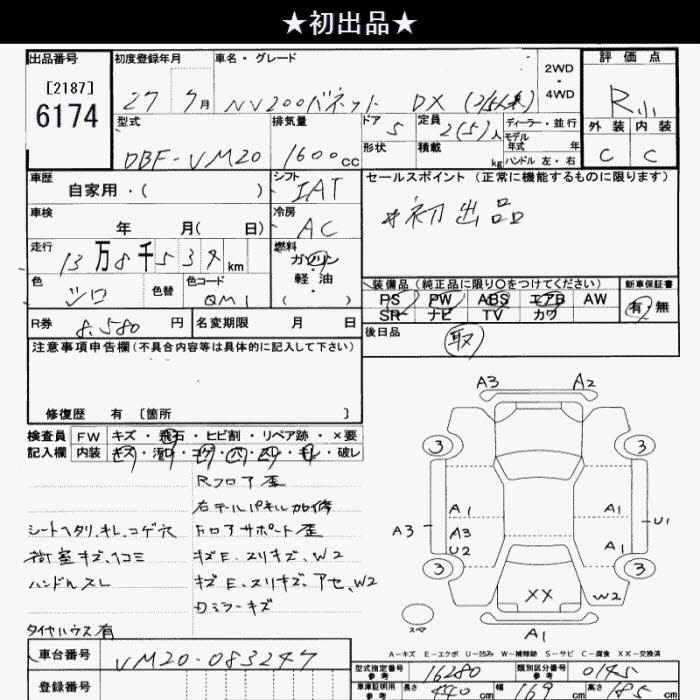 ★初出品★
出品番号 初度登録年月 車名・グレード 2WD ・ 4WD 評価点
[2187]
6174
27 7月 NV200バネット DX R小
型式 排気量 ドア 5 定員 2(5)人 ディーラー・並行 外装 内装
形状 積載 kg モデル年式 年 ハンドル 左・右
DBF-VM20 1600cc C C
車歴 自家用・( ) シフト IAT セールスポイント(正常に機能するものに限ります)
車検 年 月( 日) 冷房 AC *初出品
走行 13万8千539km 燃料 ガソリン・軽油・( )
色 シロ 色替 色コード QM1
装備品(純正品に限り○をつけてください) 新車保証書
PS PW ABS エアB AW 有・無
SR ナビ TV カワ
R券 8,580円 名変期限 月 日 後日品 取
注意事項申告欄(不具合内容等は具体的に記入して下さい)
修復歴 有 [箇所 ]
検査員 FW キズ・飛石・ヒビ割・リペア跡・×要
記入欄 内装 キズ・汚れ・コゲ・穴・スレ・キレ・破レ
Rフロア歪
右テールパネル加修
シートヘタリ、キレ、コゲ穴
荷室キズ、ヘコミ キズE、スリキズ、W2
ハンドルスレ キズE、スリキズ、アセ、W2
ミラーキズ
タイヤハウス有
A3 A2
3 3
A1 A1
A3 A3 U1
U2 A1
3 3
XX W2
スペア
A1
A-キズ E-エクボ U-凹み W-補修跡 S-サビ C-腐食 XX-交換済
車台番号 VM20-083247
型式指定番号 参考 16280 類別区分番号 参考 0145
登録番号
車庫証明用 参考 長さ 440cm 幅 169cm 高さ 185cm